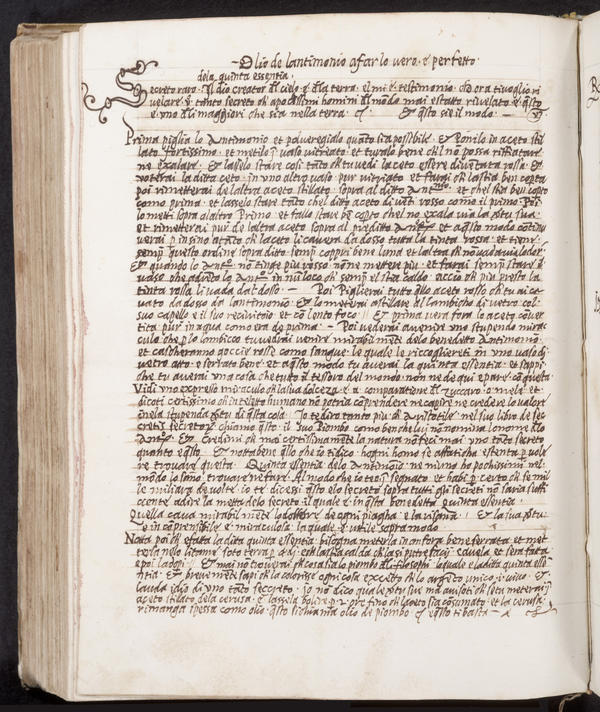 Olio de lantimonio a farlo vero · e perfetto ·
dela quinta essentia ·
Secreto raro · Il dio creator dil cielo e dila terra · el mi e testimonio che ora ti voglio ri
velare un tanto secreto ch apochissimi homini dil modo mai e stato rivelato e questo
e uno dli maggiori che sia nella terra · et questo sie il modo · —
Prima piglia lo Antimonio et polveregialo quato sia possibile · Et ponilo in aceto stil
lato fortissimo · et metilo i vaso vitreato et turalo bene ch l no possa rifiattare
ne exalare · Et lassalo stare cosi tato ch tu vedi laceto essere diventata rossa · Et
voterai la ditta ceto · in uno altro vaso pur vitriato · et fa ch la stia ben coperta
poi rimetterai de laltra aceto stillato · sopra al ditto Ant et chel stia ben copto
come prima · et lasselo stare tato chel ditto aceto divēti rosso come il primo · Poi
lo metti sopra alaltro Primo · et fallo stare copto chel no exala via la sua
et rimetterai pur de laltra aceto sopra al preditto et a questo modo continu
verai p insino atato ch laceto li cavera da dosso tutta la tinta rossa · et tieni
semp questo ordine sopra ditto semp coppri bene luna et laltra ch no vada via lodor
Et quando lo no tinge piu rosso · none mettera piu · et farai semp stare il
vaso che adentro lo in un loco ch semp el stia caldo accio ch piu presto la
tinta rossa li vada dal dosso · — Poi Piglierai tutto lo aceto rosso ch tu ai ca
vato da dosso da lantimonio et lo metterai a stillare al lambicho di vetro col
suo capello e il suo recivitoio et co lento foco · Et prima vera fora lo aceto cover
tita pur in aqua come era de prima · — Poi vederai avenire uno stupendo mirac
culo che p lo lambicco tu vederai venire mirabilmete delo benedetto Antimonio
et cascheranno goccie rosse como sangue · le quale le riccoglieret i in uno vaso di
vetro atto e serrato bene · et a questo modo tu averai la quinta essentia · et sappi
che tu averai una cosa che tutto il tessoro del mondo · non ne de qui e pare co questa
Vidi uno expresso miraculo ch la sua dolceza e a comparatione di zuccaro · o mele · et
dicoti certissimo ch intelletto humano no potria coprendere ne capire ne credere lo valore
e nela stupenda di questa cosa Io te diro tanto piu ch Aristotile nel suo libro de sec
creti secretor chiamo questo · il suo Piombo · como ben che lui no nomina lo nome dlo
Et credimi ch mai certissimamete la natura no feci mai uno tato secreto
quanto questo · Et nota bene quello che io ti dico · hogni homo se affaticha essenta p vole
re trovare questa · Quinta essentia delo Antimonio · ne niuno ho pochissimi nel
modo lo sano trovare ne fare · Al modo che io te segnato · et habi p certo ch se mil
le miliara de volte io te dicessi questo elo secreto sopra tutti qui secreti no saria suffi
ciente adire la metta delo secreto il questa benedetta Quinta essentia ·
Quella cava mirabilmete lo dolore de ogni piagha · e la risana · Et la sua
e incoprensibile e miraculosa la quale e utile sopra modo ·
Nota poi ch e fatta la ditta quinta essentia · bisogna meterla in onfora bene serrata · et met
terla nelo litame foto terra p di ch la stia calda ch la si putrefacij · e du ela · et sera fatta
e poi ladopi · Et mai no trovarai ch cosa sia lo piombo dli filosophi · lo quale e la ditta quinta essē
ntia · Et brevemete sapi ch la colorisse ogni cosa · excetto ch lo argeto unico · i vivo · Et
lauda idio di uno tato secreto · io no dico quale sue ma aviso ti ch se tu meterai i
aceto stilato dela cerusa · e lassela bolire p 2 ore fino ch laceto sia cosumato · et la cerusa ·
rimanga spessa como olio questo si chiama olio de piombo et questo ti basta —